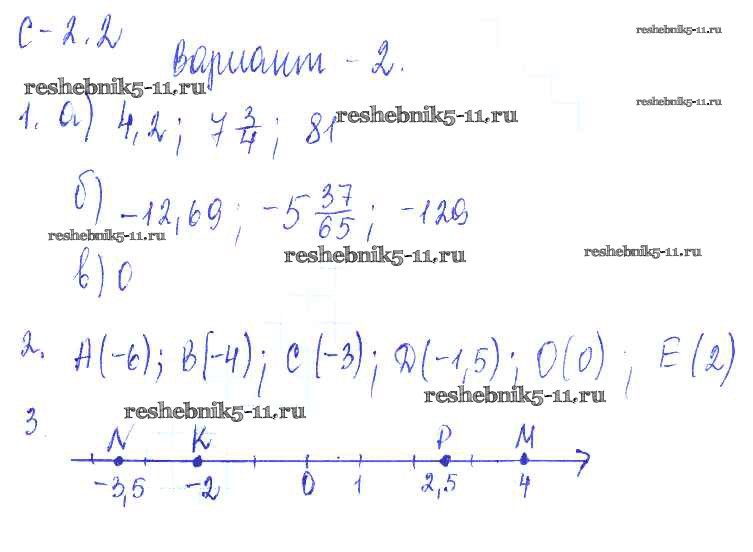 С-2.2
reshebnik5-11.ru
Вариант - 2.
reshebnik5-11.ru
reshebnik5-11.ru
1. а) 4,2; 7 3/4; 81
reshebnik5-11.ru
б) -12,69; -5 37/65; -129
reshebnik5-11.ru
reshebnik5-11.ru
reshebnik5-11.ru
в) 0
2. А(-6); В(-4); С(-3); D(-1,5); О(0); Е(2)
reshebnik5-11.ru
reshebnik5-11.ru
3
N K P M
-3,5 -2 0 1 2,5 4